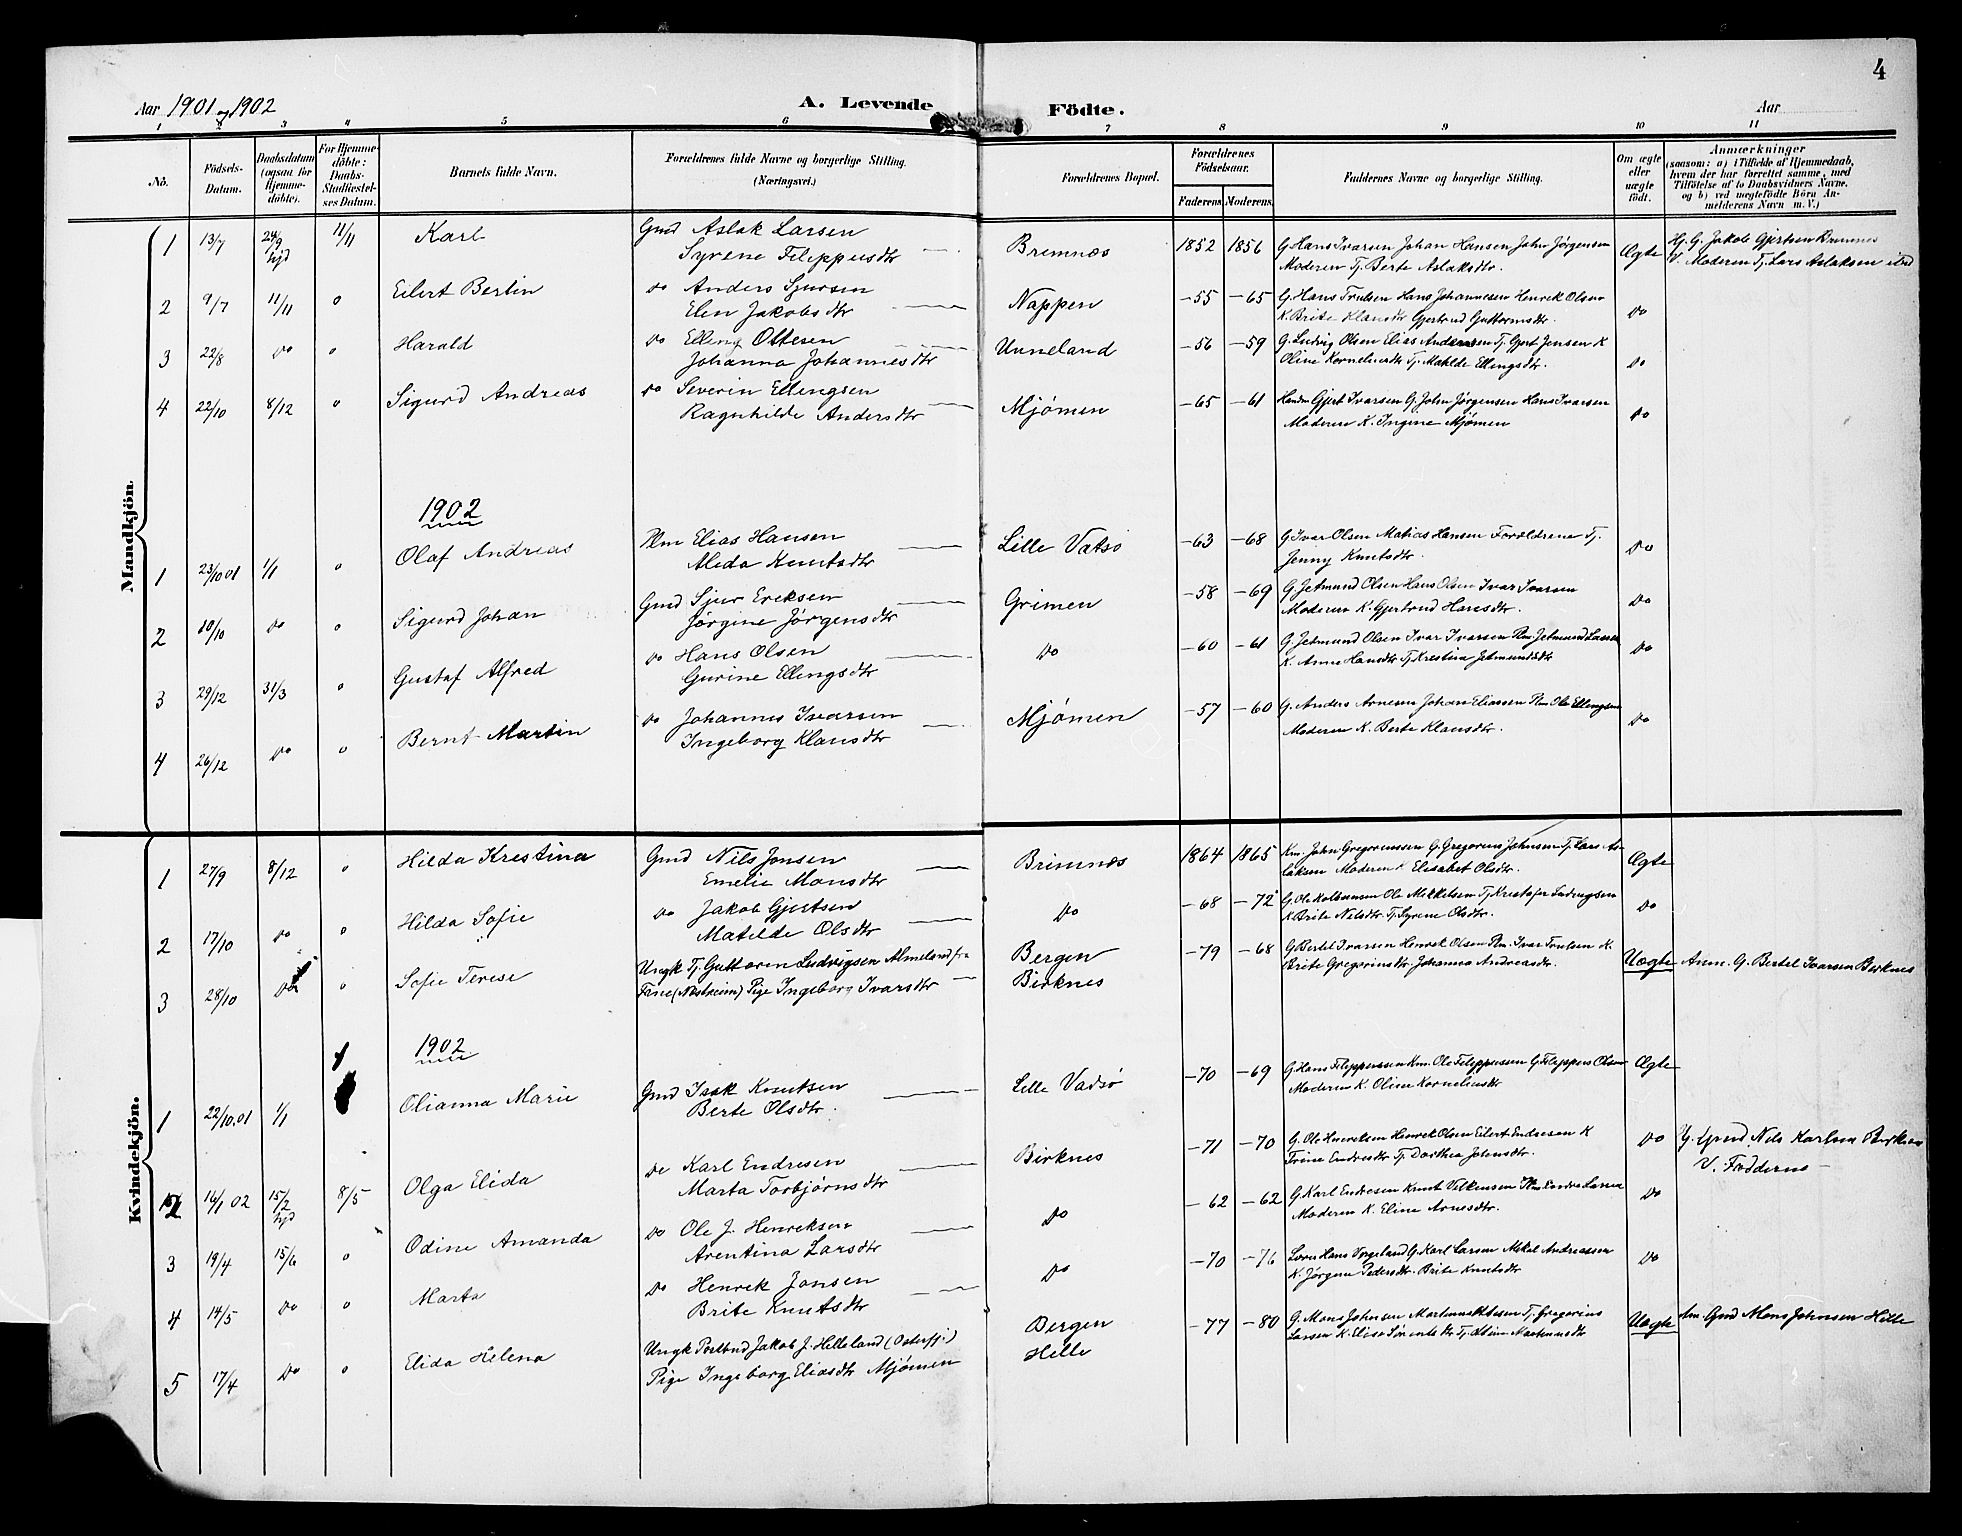 4
Aar 1901 og 1902 A. Levende Fødte. Aar
1 2 3 4 5 6 7 8 9 10 11
No. Födsels-Datum. Daabsdatum (ogsaa for Hjemme-döbte). For Hjemme-döbte: Daabs-Stadfæstel-ses Datum. Barnets fulde Navn. Forældrenes fulde Navne og borgerlige Stilling. (Næringsvei.) Forældrenes Bopæl. Forældrenes Födselsaar. Faderens Moderens Faddernes Navne og borgerlige Stilling. Om ægte eller uægte födt. Anmærkninger (saasom: a) i Tilfælde af Hjemmedaab, hvem der har forrettet samme, med Tilföielse af to Daabsvidners Navne, og b) ved uægtefödte Börn An-melderens Navn m. V.)
Mandkjön.
1 13/7 24/9 hjd 11/11 Karl Gmd Aslak Larsen Bremnæs 1852 1856 G. Hans Ivarsen Johan Hansen John Jørgensen Ægte Hj. G. Jakob Gjertsen Bremnes
Syrene Filippusdtr Moderen Tj. Berte Aslaksdtr. V. Moderen Tj. Lars Aslaksen ibd
2 9/7 11/11 " Eilert Bertin Do Anders Sjursen Nappen -55 -65 G. Hans Trulsen Hans Johannesen Henrik Olsen Do
Elen Jakobsdtr K. Brite Klausdtr Gjertrud Guttormsdtr.
3 22/8 Do " Harald Do Elling Ottesen Unneland -56 -59 G. Ludvig Olsen Elias Andersen Tj. Gjert Jensen K Do
Johanna Johannesdtr Oline Korneliusdtr Tj. Matilde Ellingsdtr.
4 22/10 8/12 " Sigurd Andreas Do Severin Ellingsen Mjømen -65 -61 Handm Gjert Ivarsen G. John Jørgensen Hans Ivarsen Do
Ragnhilde Andersdtr Moderen K. Ingine Mjømen
1902
1 23/10 01 1/1 " Olaf Andreas Plm Elias Hansen Lille Vatsø -63 -68 G Ivar Olsen Matias Hansen Forældrene Tj. Do
Alida Knutsdtr Jenny Knutsdtr.
2 10/10 Do " Sigurd Johan Gmd Sjur Eriksen Grimen -58 -69 G Jetmund Olsen Hans Olsen Ivar Ivarsen Do
Jørgine Jørgensdtr Moderen K. Gjertrud Hansdtr.
3 29/12 31/3 " Gustaf Alfred Do Hans Olsen Do -60 -61 G. Jetmund Olsen Ivar Ivarsen Plm Jetmund Larsen Do
Gurine Ellingsdtr K. Anne Hansdtr Tj. Kristina Jetmundsdtr
4 26/12 Do " Bernt Martin Do Johannes Ivarsen Mjømen -57 -60 G. Anders Arnesen Johan Eliassen Plm Ole Ellingsen Do
Ingeborg Klausdtr Moderen K. Berte Klausdtr.
Kvindekjön.
1 27/9 8/12 " Hilda Kristina Gmd Nils Jonsen Brimnæs 1864 1865 Km. John Gregoriussen G. Gregorius Johnsen Tj. Lars As- Ægte
Emelie Monsdtr laksen Moderen K Elisabet Olsdtr.
2 17/10 Do " Hilda Sofie Do Jakob Gjertsen Do -68 -72 G. Ole Kolbeinsen Ole Mikkelsen Tj. Kristofer Ludvigsen Do
Matilde Olsdtr K. Brite Nilsdtr Tj. Syrene Olsdtr.
3 28/10 Do " Sofie Terese Ungk Tj. Guttorm Ludvigsen Almeland fra Bergen -79 -68 G. Bertel Ivarsen Henrik Olsen Plm. Ivar Trulsen K. Uægte Anm. G. Bertel Ivarsen Birknes
Fane (Næstreim) Pige Ingeborg Ivarsdtr Birknes Brite Gregoriusdtr. Johanna Andreasdtr.
1902
1 22/10.01 1/1 Olianna Marie Gmd Isak Knutsen Lille Vadsø -70 -69 G. Hans Filippussen Km. Ole Filippussen G. Filippus Olsen Ægte
Berte Olsdtr. Moderen K. Oline Korneliusdtr
2 16/1 02 15/2 hjd 8/5 Olga Elida Do Karl Endresen Birknes -71 -70 G. Ole Henriksen Henrik Olsen Eilert Endresen K Do Hj. Gmd Nils Karlsen Birknes
Marta Torbjørnsdtr Trine Endresdtr Tj. Dorthea Johnsdtr. V. Fadderne
3 19/4 15/6 " Odine Amanda Do Ole J. Henriksen Do -62 -62 G. Karl Endresen Knut Vilkensen Plm Endre Larsen Do
Arentina Larsdtr Moderen K. Eline Arnesdtr.
4 14/5 Do " Marta Do Henrik Jonsen Do -70 -76 Lærer Hans Vergeland G. Karl Larsen Mikal Andreassen Do
Brite Knutsdtr K. Jørgine Pedersdtr. Brite Knutsdtr
5 17/4 Do " Elida Helena Ungk Postbud Jakob J. Helleland (Osterfj.) Bergen -77 -80 G. Mons Johnsen Martinus Ottesen Tj. Gregorius Uægte Am Gmd Mons Johnsen Hille
Pige Ingeborg Eliasdtr Mjømen Hille Larsen K. Elise Tj. Martinusdtr